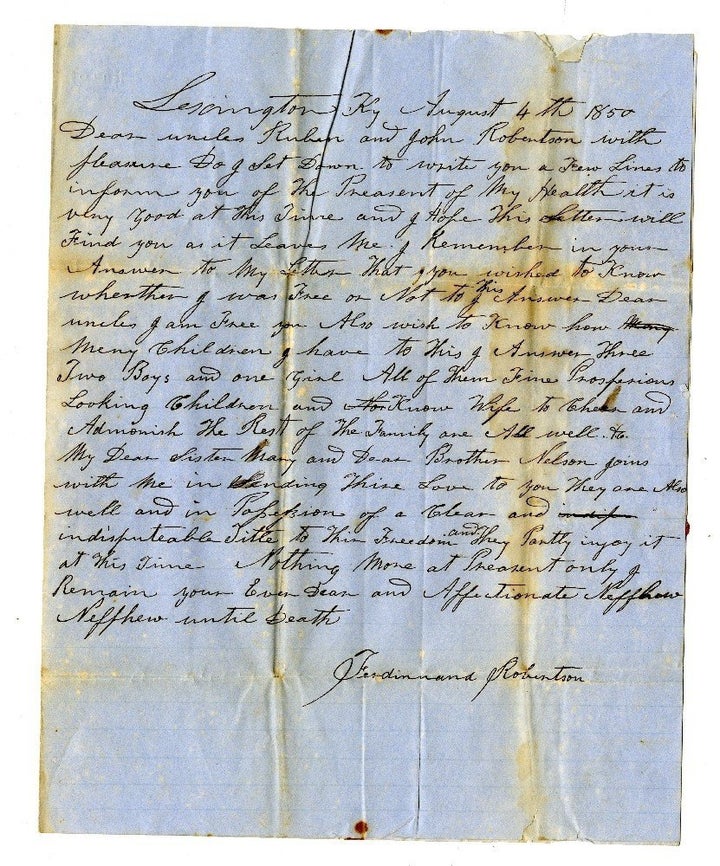 Lexington Ky August 4th 1850
Dear uncles Ruben and John Robertson with
pleasure Do I Set Down to write you a Few Lines to
inform you of The Preasent of My Health it is
very good at this Time and I Hope This Letter will
Find you as it Leaves Me. I Remember in your
Answer to My Letter That you wished to Know
wherther I was Free or Not to this I Answer Dear
uncles I am Free you Also wish to Know how Many
Meny Children I have to This I Answer Three
Two Boys and one Girl All of Them Fine Prosperious
Looking Children and Know Wife to Cheer and
Admonish The Rest of The Family are All well &c.
My Dear Sister Mary and Dear Brother Nelson joins
with Me in Sending Thire Love to you They are Also
well and in Possession of a Clear and
indisputeable Title to Thir Freedom and They Partly injoy it
at This Time Nothing More at Preasent only I
Remain your Ever Dear and Affectionate Neffhew
Neffhew until Death
Ferdinnand Robertson